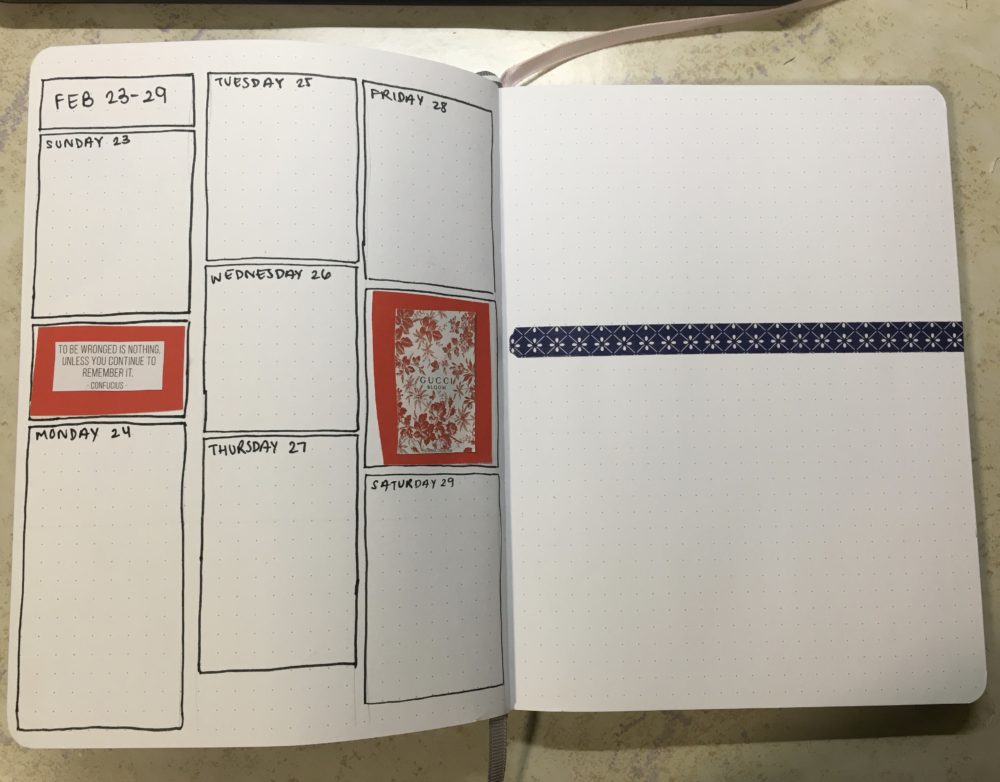 FEB 23-29
SUNDAY 23
TO BE WRONGED IS NOTHING,
UNLESS YOU CONTINUE TO
REMEMBER IT.
- CONFUCIUS -
MONDAY 24
TUESDAY 25
WEDNESDAY 26
THURSDAY 27
FRIDAY 28
GUCCI
BLOOM
SATURDAY 29